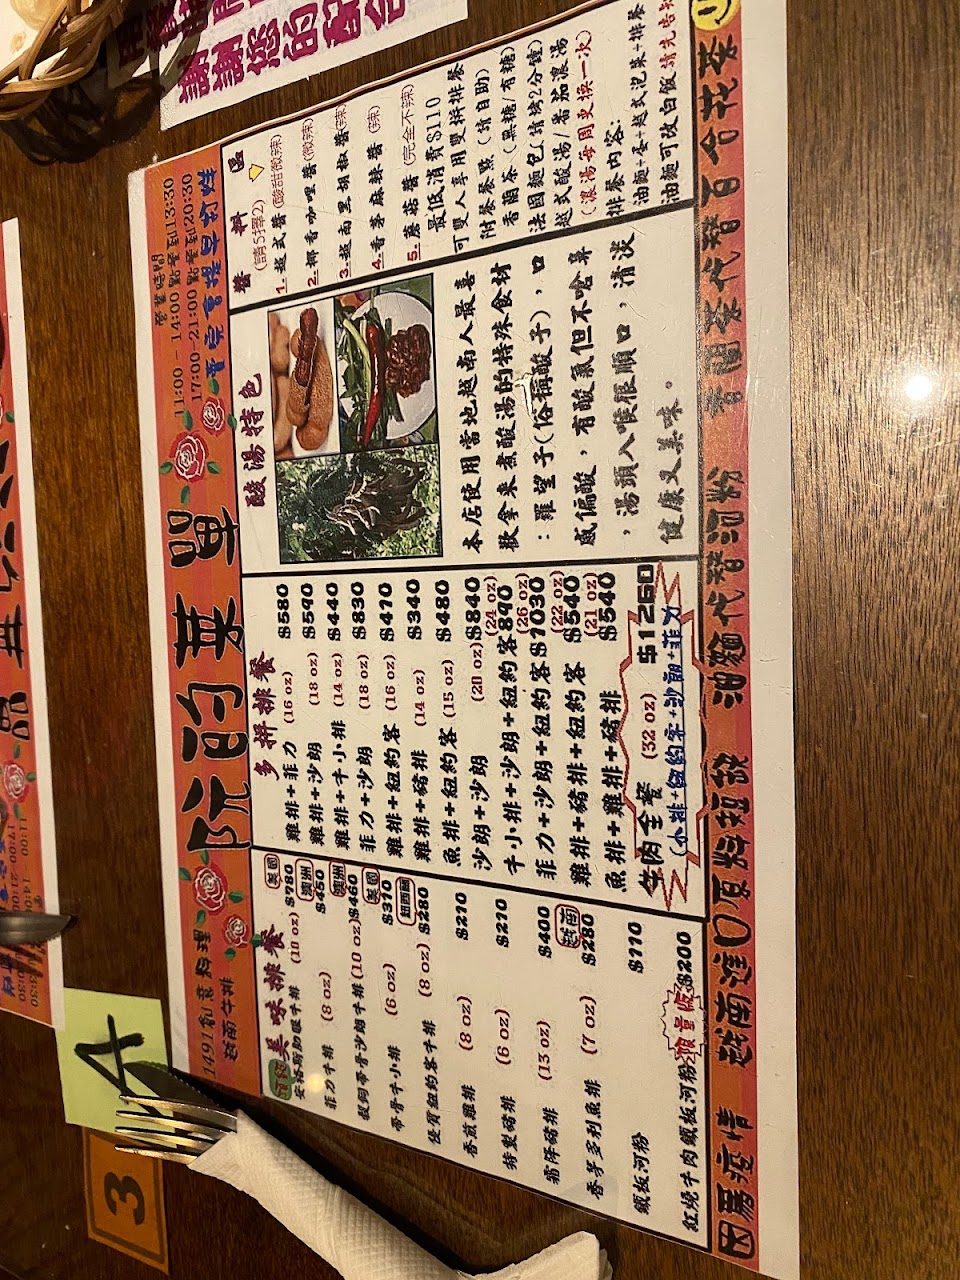 謝謝您的配合
1491創意料理
越南牛排
阮的菓單
營業時間
11:00 - 14:00 點餐到13:30
17:00-21:00 點餐到20:30
賣完會提早打烊
美味排餐
安格斯肋眼牛排 (10 oz) $780 美國
菲力牛排 (8 oz) $450 澳洲
穀飼帶骨沙朗牛排 (10 oz) $460 澳洲
帶骨牛小排 (6 oz) $310 美國
優質紐約客牛排 (8 oz) $280 紐西蘭
香煎雞排 (8 oz) $210
特製豬排 (6 oz) $210
霜降豬排 (13 oz) $400
香茅多利魚排 (7 oz) $280 越南
鐵板河粉 $110
紅燒牛肉鐵板河粉 限量版 $200
多拼排餐
雞排+菲力 (16 oz) $580
雞排+沙朗 (18 oz) $590
雞排+牛小排 (14 oz) $440
菲力+沙朗 (18 oz) $830
雞排+紐約客 (16 oz) $410
雞排+豬排 (14 oz) $340
魚排+紐約客 (15 oz) $480
沙朗+沙朗 (20 oz) $840
牛小排+沙朗+紐約客 (24 oz) 890
菲力+沙朗+紐約客 (26 oz) $1030
雞排+豬排+紐約客 (22 oz) $540
魚排+雞排+豬排 (21 oz) $540
牛肉全餐 (32 oz) $1260
(小排+紐約客+沙朗+菲力)
酸湯特色
本店使用當地越南人最喜
歡拿來煮酸湯的特殊食材
：羅望子(俗稱酸子)，口
感偏酸，有酸氣但不嗆鼻
，湯頭入喉很順口，清淡
健康又美味。
醬料區
(請5擇2)
1.越式醬 (酸甜微辣)
2.椰香咖哩醬 (微辣)
3.越南黑胡椒醬 (辣)
4.香茅麻辣醬 (辣)
5.蘑菇醬 (完全不辣)
最低消費$110
可雙人享用雙拼排餐
附餐餐點 (請自助)
香蘭茶 (無糖/有糖)
法國麵包(請烤2分鐘)
越式酸湯/番茄濃湯
(濃湯每周更換一次)
排餐內容:
油麵+蛋+越式泡菜+排餐
油麵可改白飯請先告知
因為疫情 越南進口原料短缺 油麵代替河粉 香蘭茶代替百合花茶
4
3